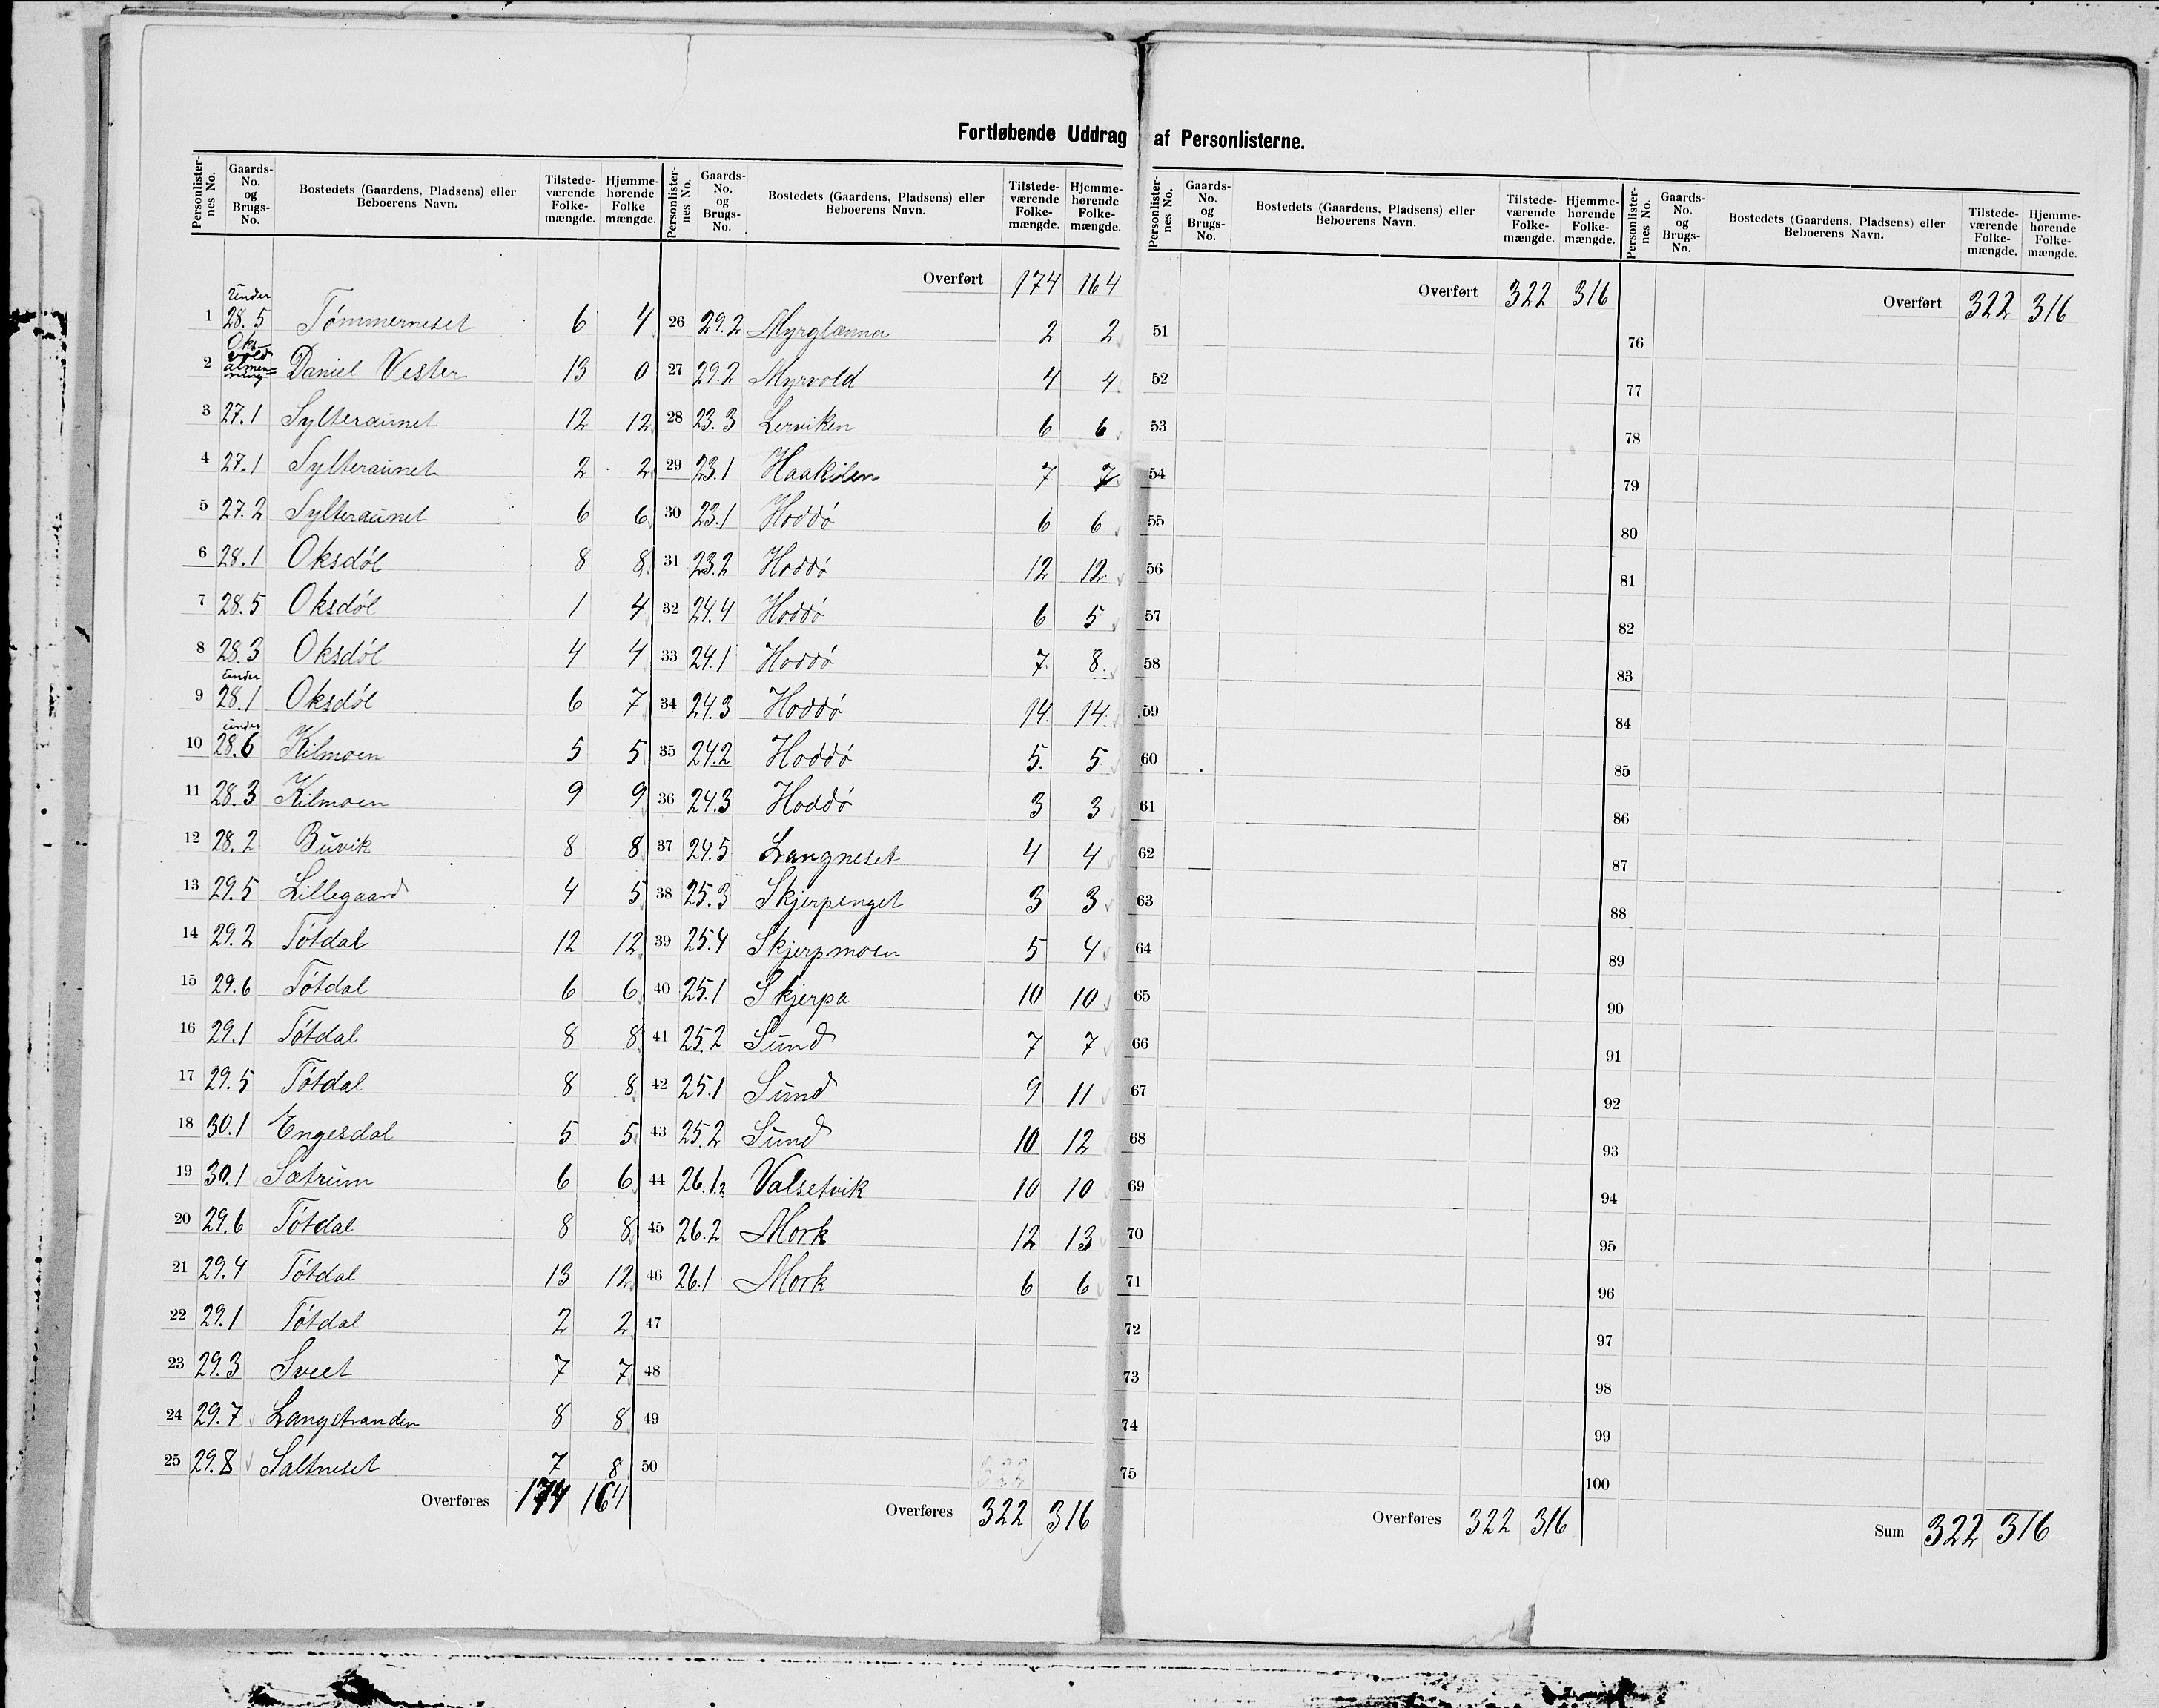 Fortløbende Uddrag af Personlisterne.
Personlister-nes No. Gaards-No. og Brugs-No. Bostedets (Gaardens, Pladsens) eller Beboerens Navn. Tilstede-værende Folke-mængde. Hjemme-hørende Folke mængde.
1 Under 28.5 Tømmerneset 6 4
2 Oks-vold almen-ning Daniel Vester 13 0
3 27.1 Sylteraunet 12 12
4 27.1 Sylteraunet 2 2
5 27.2 Sylteraunet 6 6
6 28.1 Oksdøl 8 8
7 28.5 Oksdøl 1 4
8 28.3 Oksdøl 4 4
9 under 28.1 Oksdøl 6 7
10 under 28.6 Kilmoen 5 5
11 28.3 Kilmoen 9 9
12 28.2 Buvik 8 8
13 29.5 Lillegaard 4 5
14 29.2 Tøtdal 12 12
15 29.6 Tøtdal 6 6
16 29.1 Tøtdal 8 8
17 29.5 Tøtdal 8 8
18 30.1 Engesdal 5 5
19 30.1 Sætrum 6 6
20 29.6 Tøtdal 8 8
21 29.4 Tøtdal 13 12
22 29.1 Tøtdal 2 2
23 29.3 Sveet 7 7
24 29.7 Langstranden 8 8
25 29.8 Saltneset 7 8
Overføres 174 164
Personlister-nes No. Gaards-No. og Brugs-No. Bostedets (Gaardens, Pladsens) eller Beboerens Navn. Tilstede-værende Folke-mængde. Hjemme-hørende Folke-mængde.
Overført 174 164
26 29.2 Myrglænna 2 2
27 29.2 Myrvold 4 4
28 23.3 Lerviken 6 6
29 23.1 Haakilen 7 7
30 23.1 Hoddø 6 6
31 23.2 Hoddø 12 12
32 24.4 Hoddø 6 5
33 24.1 Hoddø 7 8
34 24.3 Hoddø 14 14
35 24.2 Hoddø 5 5
36 24.3 Hoddø 3 3
37 24.5 Langneset 4 4
38 25.3 Skjerpenget 3 3
39 25.4 Skjerpmoen 5 4
40 25.1 Skjerpa 10 10
41 25.2 Sund 7 7
42 25.1 Sund 9 11
43 25.2 Sund 10 12
44 26.1.2 Valsetvik 10 10
45 26.2 Mork 12 13
46 26.1 Mork 6 6
47
48
49
50
Overføres 322 316
Personlister-nes No. Gaards-No. og Brugs-No. Bostedets (Gaardens, Pladsens) eller Beboerens Navn. Tilstede-værende Folke-mængde. Hjemme-hørende Folke-mængde.
Overført 322 316
51
52
53
54
55
56
57
58
59
60
61
62
63
64
65
66
67
68
69
70
71
72
73
74
75
Overføres 322 316
Personlister-nes No. Gaards-No. og Brugs-No. Bostedets (Gaardens, Pladsens) eller Beboerens Navn. Tilstede-værende Folke-mængde. Hjemme-hørende Folke-mængde.
Overført 322 316
76
77
78
79
80
81
82
83
84
85
86
87
88
89
90
91
92
93
94
95
96
97
98
99
100
Sum 322 316